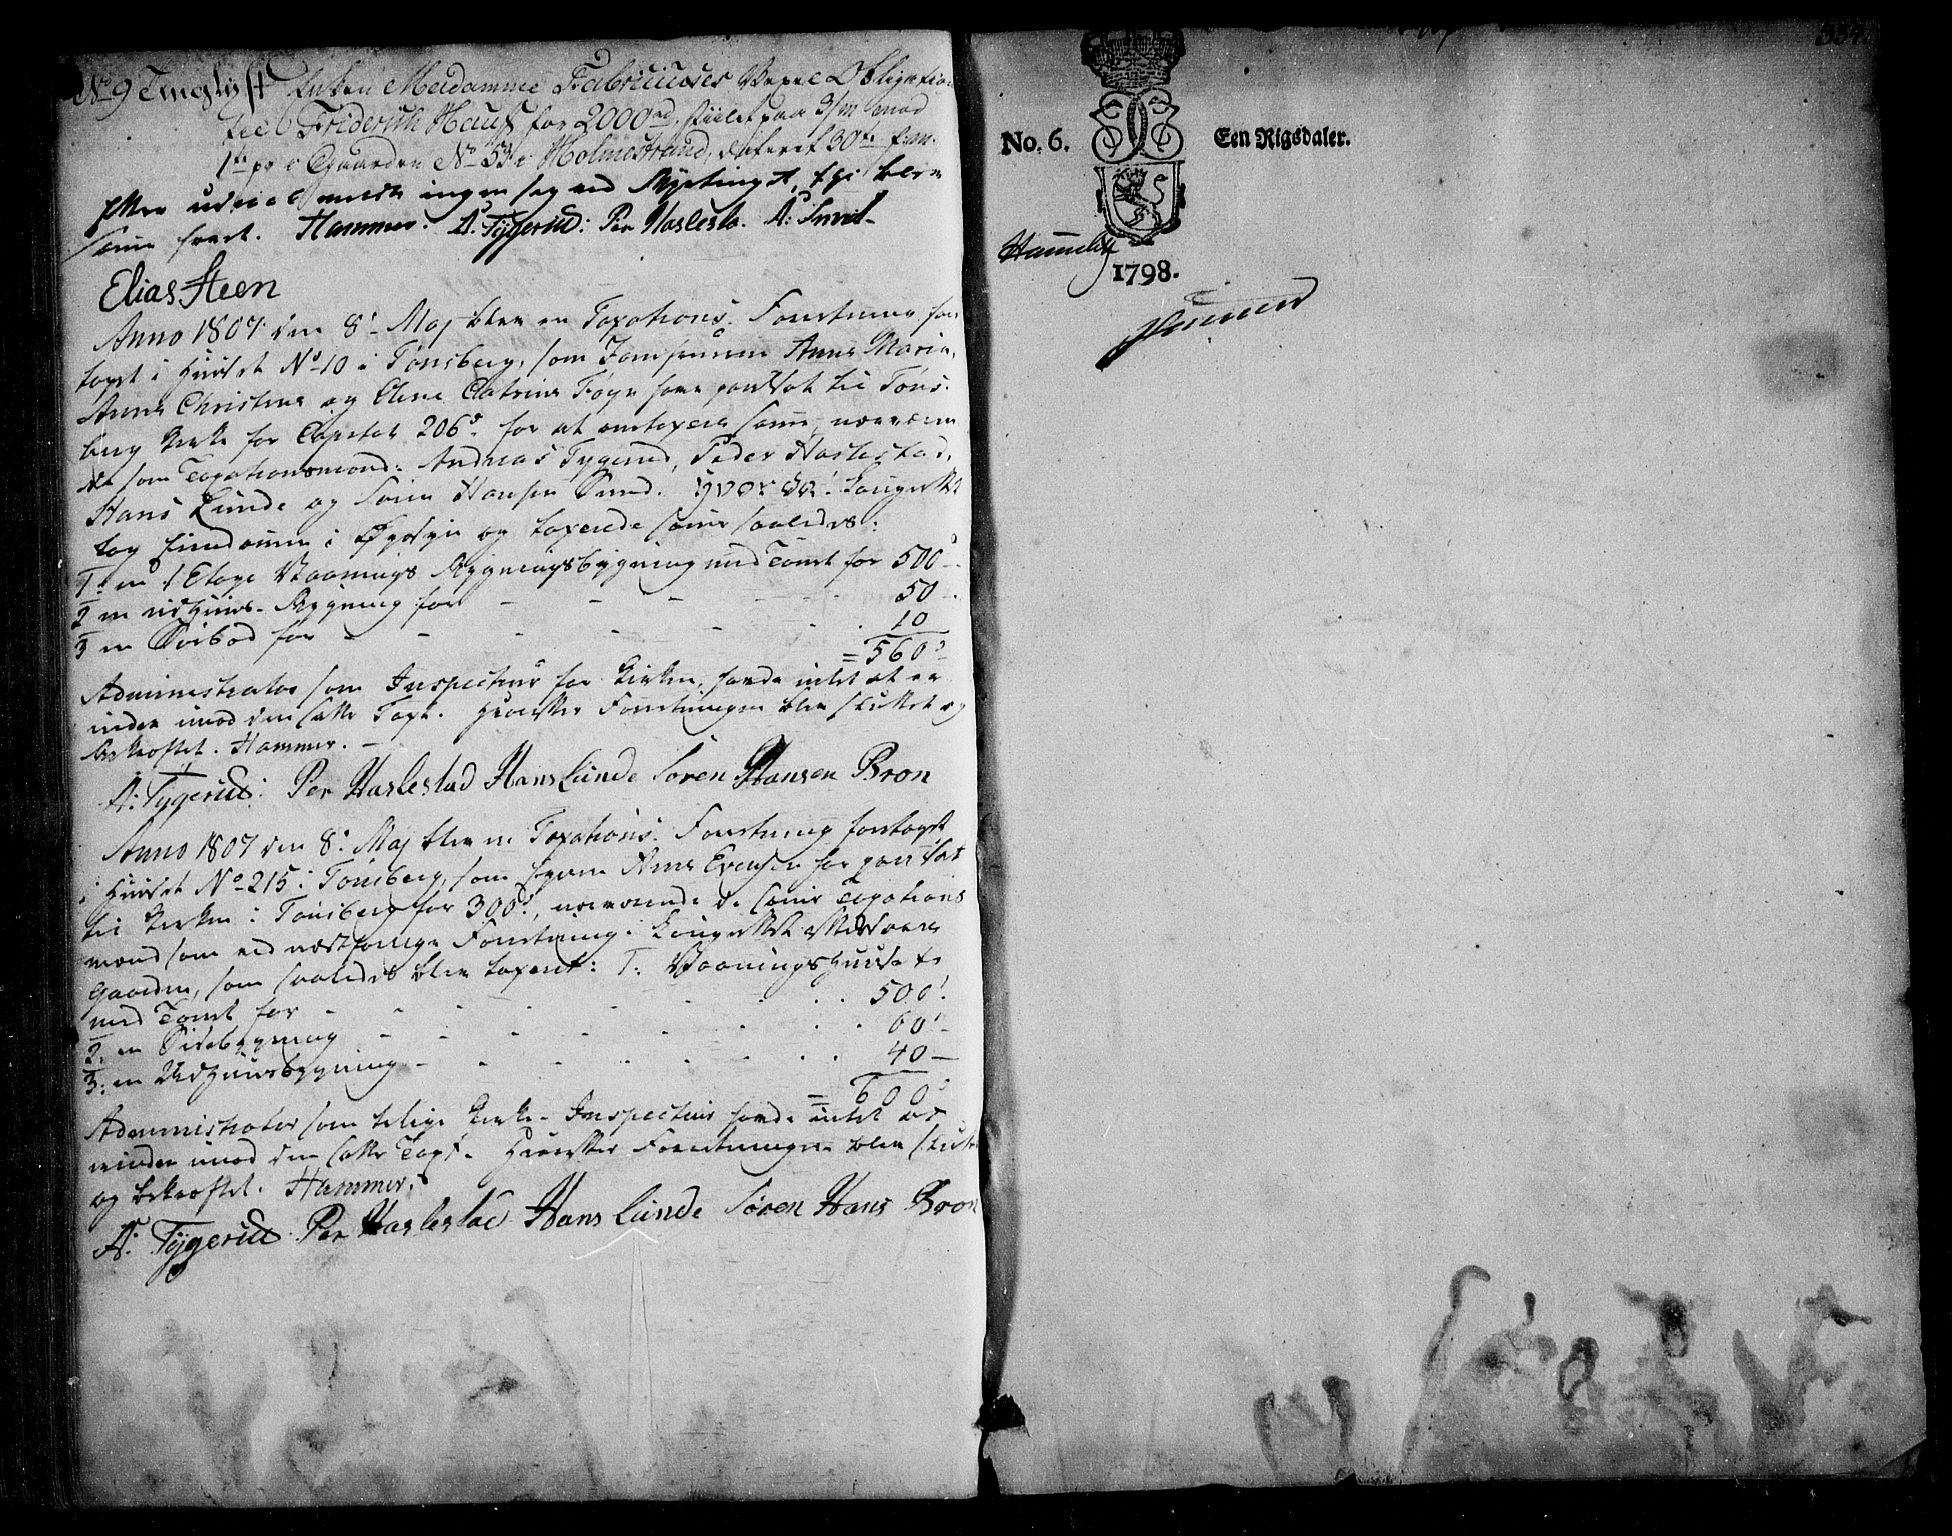 No 9 Tinglyst Enken Madamme Fabriciuses Obligation
til Friderich Hauss for 2000rd, paa 3/m mod
1te pr i Gaarden No 53 i Holmestrand, dateret 30te
ingen sig ved blev
samme Hammer. A: Tygerud: Per Haslesta. A:
Elias Steen
Anno 1807 den 8de Maj blev en Taxations Forretning fore
taget i Huuset No 10 i Tønsberg, som Jomfruerne Anne Maria,
Anne Christine og Elene Catrine Føyn have pantsat til Tøns-
berg Kirke for Capital 206 for at omtaxere samme, nærværen
de som Taxationsmænd: Andreas Tygerud, Peder Haslestad,
Hans Lunde og Søren Hansen Brund. Hvor da Laugrettet
tog Eiendommen i Øyesyn og taxerede samme saaledes:
1: en 1 Etage Vaanings Bygningsbygning med Tomt for 500 -
2 en Udhuus-Bygning for - - - - 50 -
3 en Søebod for - - - - 10
= 560
Administrator som Inspecteur for Kirken, havde intet at er
indre imod den satte Taxt. Hvorefter Forretningen blev sluttet og
bekræftet. Hammer. -
A: Tygerud: Per Haslestad Hans Lunde Søren Hansen Bron
Anno 1807 den 8de Maj blev en Taxations Forretning foretaget
i Huuset No 215 i Tønsberg, som Anne Evensen har pantsat
til Kirken i Tønsberg for 300, nærværende de samme Taxations
mænd som ved næstforrige Forretning. Laugrettet
Gaarden, som saaledes blev taxeret: 1: Vaaningshuuset
med Tomt for - - - - 500
2: en Sidebygning - - - - 60 -
3: en Udhuusbygning - - - - 40 -
= 600
Administrator som tillige Kirke-Inspecteur havde intet at er
indre imod den satte Taxt. Hvorefter Forretningen blev sluttet
og bekræftet. Hammer.
A: Tygerud Per Haslestad Hans Lunde Søren Hans Bron
No. 6. Een Rigsdaler.
1798.